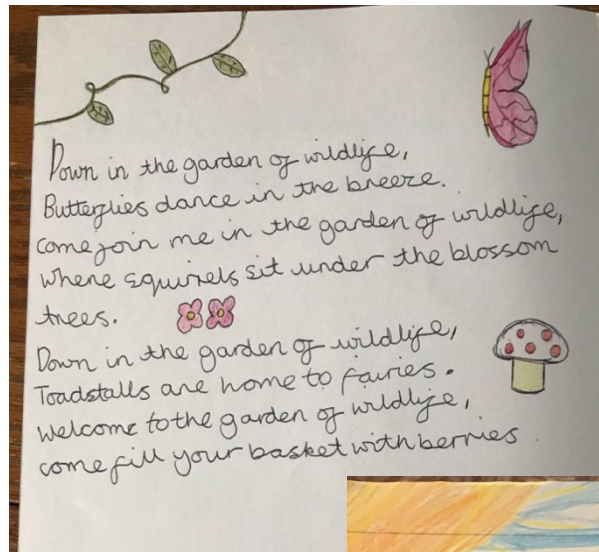 Down in the garden of wildlife,
Butterflies dance in the breeze.
Come join me in the garden of wildlife,
where squirrels sit under the blossom
trees.
Down in the garden of wildlife,
Toadstalls are home to fairies.
Welcome to the garden of wildlife,
come fill your basket with berries.